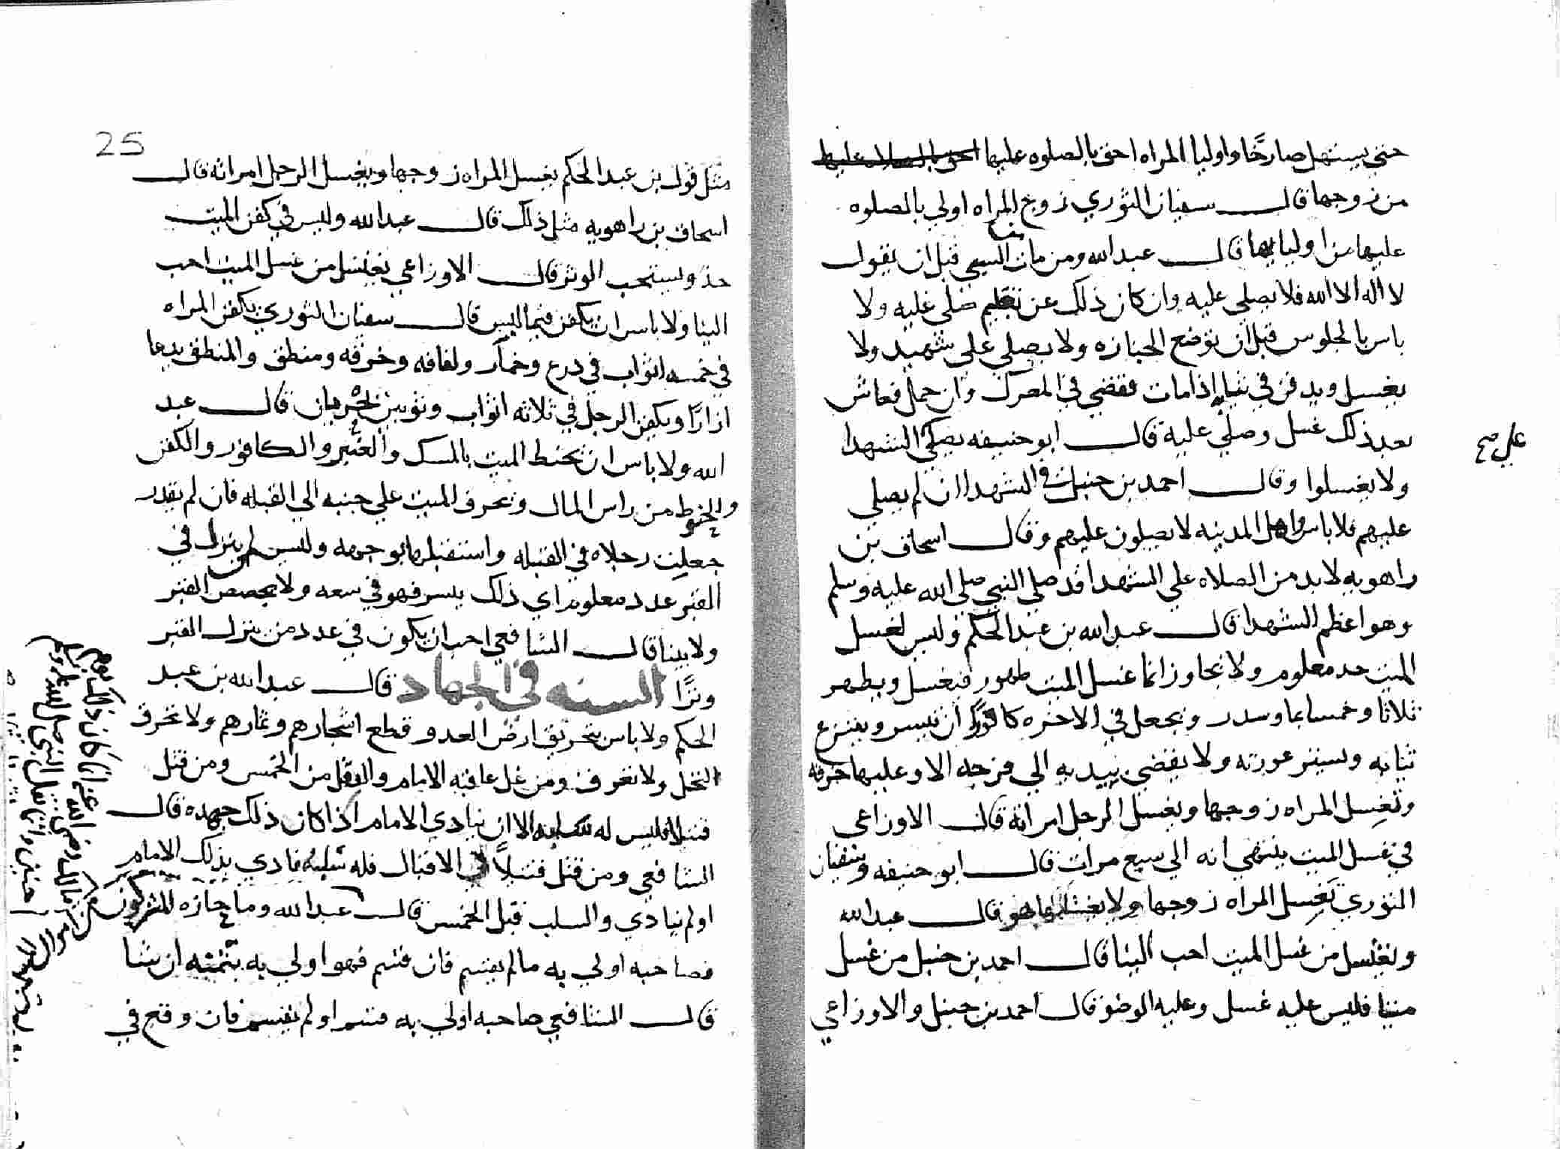 حتى يستهل صارخًا واوليا المراه احق بالصلوه عليها احق بالصلاه عليها
من زوجها قال سفيان الثوري زوج المراه اولي بالصلوه
عليها من اوليايها قال عبد الله ومن مات السبي قبل ان يقول
لا اله الا الله فلا يصلي عليه وان كان ذلك عن تعليم صلي عليه ولا
باس بالجلوس قبل ان توضع الجنازه ولا يصلي على شهيد ولا
يغسل ويدفن في ثيابه اذا مات فقضي في المعرك وان حمل فعاش
بعد ذلك غسل وصلي عليه قال ابو حنيفه يصلي الشهدا
على صح
ولا يغسلوا وقال احمد بن حنبل في الشهدا ان لم يصلي
عليهم فلا باس واهل المدينه لا يصلون عليهم وقال اسحاق بن
راهويه لا بد من الصلاه علي الشهدا قد صلي النبي صلى الله عليه وسلم
وهو اعظم الشهدا قال عبد الله بن عبد الحكم وليس لغسل
الميت حد معلوم ولا يجاوز انما غسل الميت طهور فيغسل ويطهر
ثلاثا وخمسا بما وسدر ويجعل في الاخره كافور ان تيسر وينزع
ثيابه وتستر عورته ولا يفضي بيده الي فرجه الا وعليها خرقه
وتغسل المراه زوجها ويغسل الرجل امراته قال الاوزاعي
في غسل الميت ينتهي انه الي سبع مرات قال ابو حنيفه وسفيان
الثوري تغسل المراه زوجها ولا يغسلها هو قال عبد الله
ويغتسل من غسل الميت احب الينا قال احمد بن حنبل من غسل
ميتا فليس عليه غسل وعليه الوضو قال احمد بن حنبل والاوزاعي
25
مثل قول بن عبد الحكم تغسل المراه زوجها ويغسل الرجل امراته قال
اسحاق بن راهويه مثل ذلك قال عبد الله وليس في كفن الميت
حد ويستحب الوتر قال الاوزاعي يغتسل من غسل الميت احب
الينا ولا باس ان يكفن فيما لبس قال سفيان الثوري يكفن المراه
في خمسه اثواب في درع وخمار ولفافه وخرقه ومنطق والمنطق يدعا
ازارًا ويكفن الرجل في ثلاثه اثواب وثوبين يجزيان قال عبد
الله ولا باس ان يحنط الميت بالمسك والعنبر والكافور والكفن
والحنوط من راس المال ويحرف الميت علي جنبه الي القبله فان لم يقدر
جعلت رجلاه في القبله واستقبلها بوجهه وليس لمن ينزل في
القبر عدد معلوم اي ذلك يسر فهو في سعه ولا يجصص القبر
ولا يبنا قال الشافعي احب ان يكون في عدد من ينزل القبر
وترًا السنه في الجهاد قال عبد الله بن عبد
الحكم ولا باس بتحريق ارض العدو وقطع اشجارهم وثمارهم ولا تحرق
النخل ولا تغرق ومن غل عاقبه الامام والنفل من الخمس ومن قتل
قتيلا فليس له سلبه الا ان ينادي الامام اذا كان ذلك جهده قال
الشافعي ومن قتل قتيلاً في الاقبال فله سلبه نادي بذلك الامام
او لم ينادي والسلب قبل الخمس قال عبد الله وما حازه المشركون
فصاحبه اولي به ما لم يقسم فان قسم فهو اولي به بثمنه ان شا
قال الشافعي صاحبه اولي به قسم او لم يقسم فان وقع في